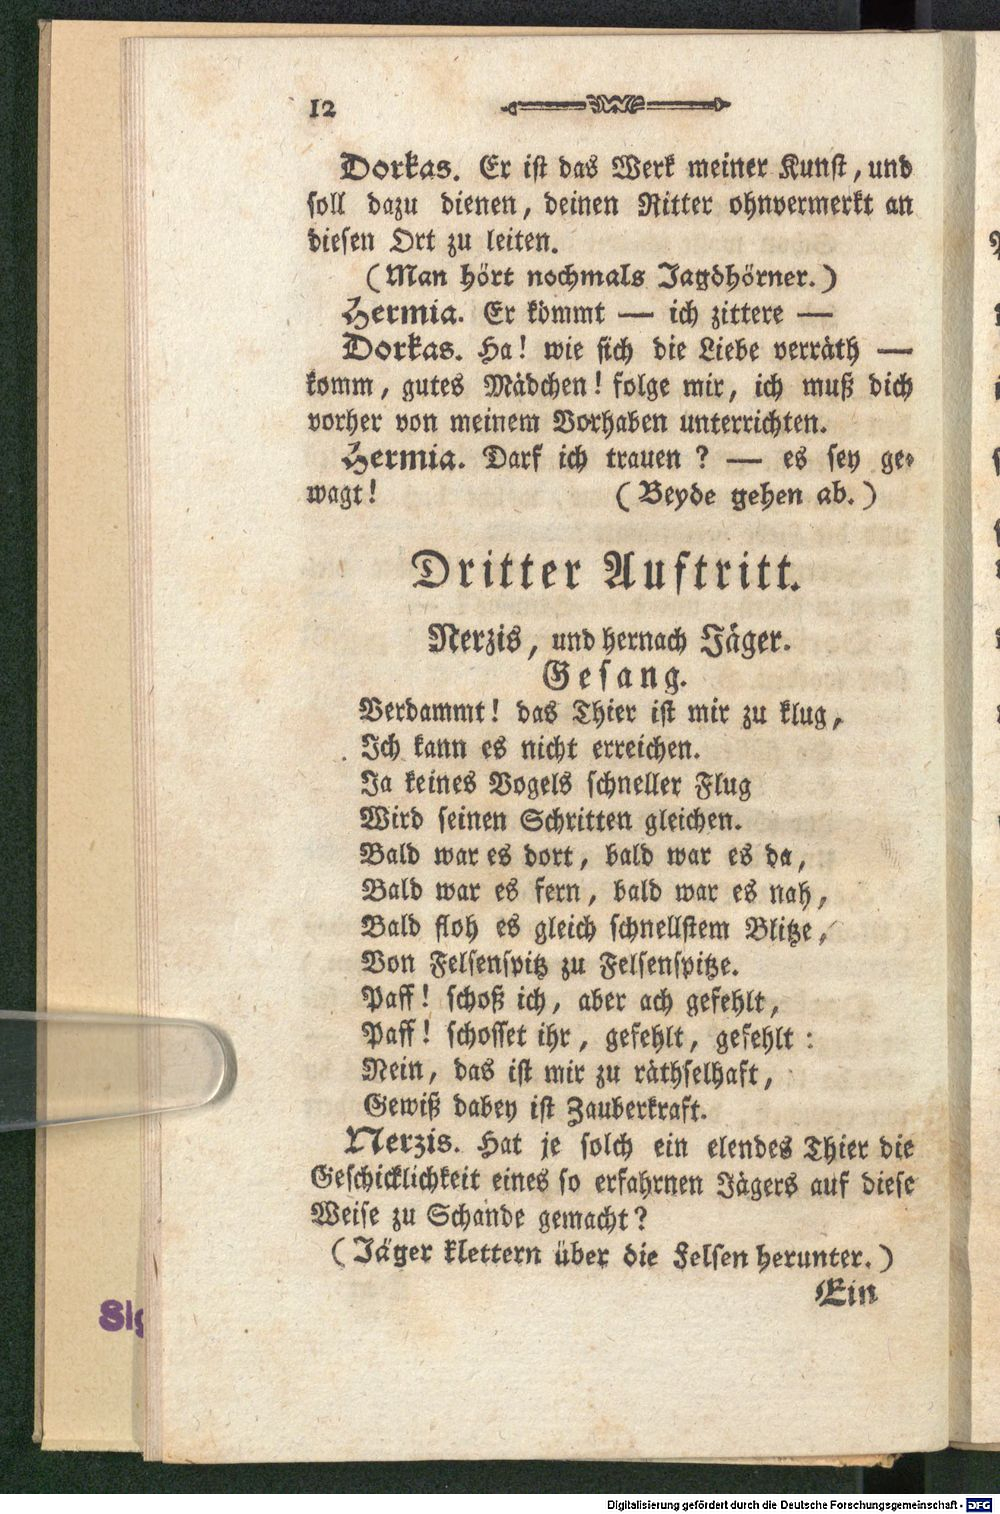 12
Dorkas. Er ist das Werk meiner Kunst, und
soll dazu dienen, deinen Ritter ohnvermerkt an
diesen Ort zu leiten.
(Man hört nochmals Jagdhörner.)
Hermia. Er kömmt — ich zittere —
Dorkas. Ha! wie sich die Liebe verräth —
komm, gutes Mädchen! folge mir, ich muß dich
vorher von meinem Vorhaben unterrichten.
Hermia. Darf ich trauen? — es sey ge-
wagt! (Beyde gehen ab.)
Dritter Auftritt.
Nerzis, und hernach Jäger.
Gesang.
Verdammt! das Thier ist mir zu klug,
Ich kann es nicht erreichen.
Ja keines Vogels schneller Flug
Wird seinen Schritten gleichen.
Bald war es dort, bald war es da,
Bald war es fern, bald war es nah,
Bald floh es gleich schnellstem Blitze,
Von Felsenspitz zu Felsenspitze.
Paff! schoß ich, aber ach gefehlt,
Paff! schosset ihr, gefehlt, gefehlt:
Nein, das ist mir zu räthselhaft,
Gewiß dabey ist Zauberkraft.
Nerzis. Hat je solch ein elendes Thier die
Geschicklichkeit eines so erfahrnen Jägers auf diese
Weise zu Schande gemacht?
(Jäger klettern über die Felsen herunter.)
Ein
Digitalisierung gefördert durch die Deutsche Forschungsgemeinschaft - DFG